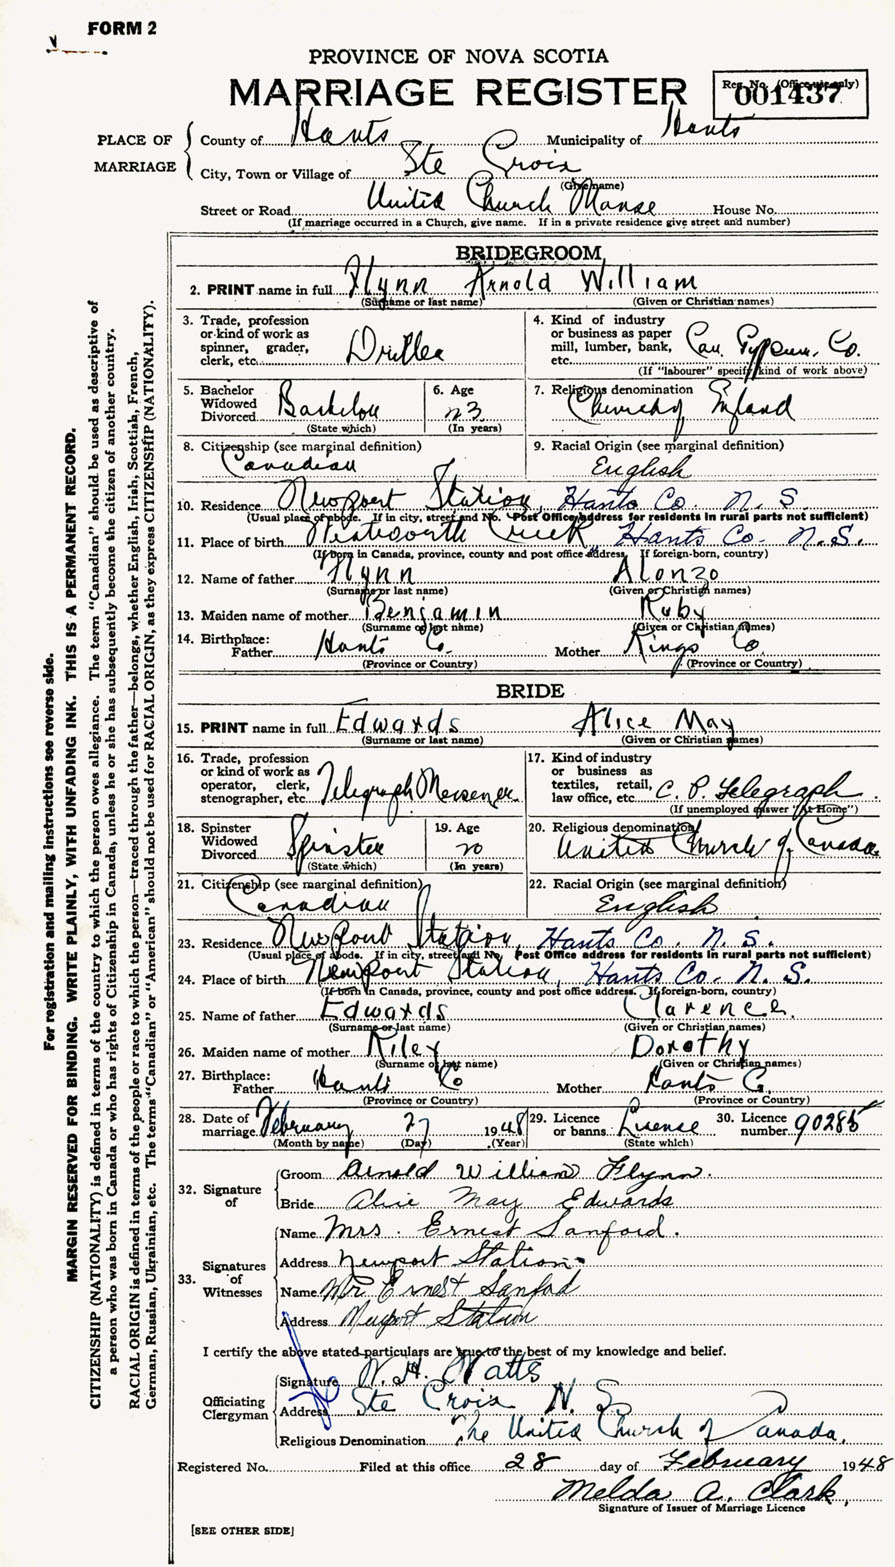 FORM 2
PROVINCE OF NOVA SCOTIA
MARRIAGE REGISTER
Reg. No. (Office use only)
001437
PLACE OF MARRIAGE
County of Hants Municipality of Hants
City, Town or Village of Ste Croix
(Give name)
Street or Road United Church Manse House No.
(If marriage occurred in a Church, give name. If in a private residence give street and number)
BRIDEGROOM
2. PRINT name in full Flynn Arnold William
(Surname or last name) (Given or Christian names)
3. Trade, profession or kind of work as spinner, grader, clerk, etc. Driller
4. Kind of industry or business as paper mill, lumber, bank, etc. Can. Gypsum. Co.
(If "labourer" specify kind of work above)
5. Bachelor Widowed Divorced Bachelor
(State which)
6. Age 23
(In years)
7. Religious denomination Church of England
8. Citizenship (see marginal definition) Canadian
9. Racial Origin (see marginal definition) English
10. Residence Newport Station, Hants Co. N. S
(Usual place of abode. If in city, street and No. Post Office address for residents in rural parts not sufficient)
11. Place of birth Creek Hants Co. N.S.
(If born in Canada, province, county and post office address. If foreign-born, country)
12. Name of father Flynn Alonzo
(Surname or last name) (Given or Christian names)
13. Maiden name of mother Benjamin Ruby
(Surname or last name) (Given or Christian names)
14. Birthplace: Father Hants Co. Mother Kings Co.
(Province or Country) (Province or Country)
BRIDE
15. PRINT name in full Edwards Alice May
(Surname or last name) (Given or Christian names)
16. Trade, profession or kind of work as operator, clerk, stenographer, etc. Telegraph Messenger
17. Kind of industry or business as textiles, retail, law office, etc. C. P. Telegraph
(If unemployed answer "At Home")
18. Spinster Widowed Divorced Spinster
(State which)
19. Age 20
(In years)
20. Religious denomination United Church of Canada
21. Citizenship (see marginal definition) Canadian
22. Racial Origin (see marginal definition) English
23. Residence Newport Station, Hants Co. N. S.
(Usual place of abode. If in city, street and No. Post Office address for residents in rural parts not sufficient)
24. Place of birth Newport Station, Hants Co. N.S.
(If born in Canada, province, county and post office address. If foreign-born, country)
25. Name of father Edwards Clarence.
(Surname or last name) (Given or Christian names)
26. Maiden name of mother Riley Dorothy
(Surname or last name) (Given or Christian names)
27. Birthplace: Father Hants Co Mother Hants Co.
(Province or Country) (Province or Country)
28. Date of marriage February 27 1948
(Month by name) (Day) (Year)
29. Licence or banns License
(State which)
30. Licence number 90285
32. Signature of
Groom Arnold William Flynn.
Bride Alice May Edwards
33. Signatures of Witnesses
Name Mrs. Ernest Sanford.
Address Newport Station.
Name Mr Ernest Sanford
Address Newport Station
I certify the above stated particulars are true to the best of my knowledge and belief.
Officiating Clergyman
Signature W. H. Watts
Address Ste Croix N. S.
Religious Denomination The United Church of Canada.
Registered No. Filed at this office 28 day of February 1948
Melda A. Clark,
Signature of Issuer of Marriage Licence
[SEE OTHER SIDE]
For registration and mailing instructions see reverse side.
MARGIN RESERVED FOR BINDING. WRITE PLAINLY, WITH UNFADING INK. THIS IS A PERMANENT RECORD.
CITIZENSHIP (NATIONALITY) is defined in terms of the country to which the person owes allegiance. The term "Canadian" should be used as descriptive of
a person who was born in Canada or who has rights of Citizenship in Canada, unless he or she has subsequently become the citizen of another country.
RACIAL ORIGIN is defined in terms of the people or race to which the person—traced through the father—belongs, whether English, Irish, Scottish, French,
German, Russian, Ukrainian, etc. The terms "Canadian" or "American" should not be used for RACIAL ORIGIN, as they express CITIZENSHIP (NATIONALITY).